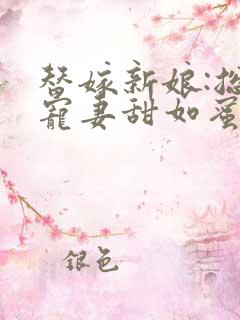 替嫁新娘:总
宠妻甜如蜜
银色